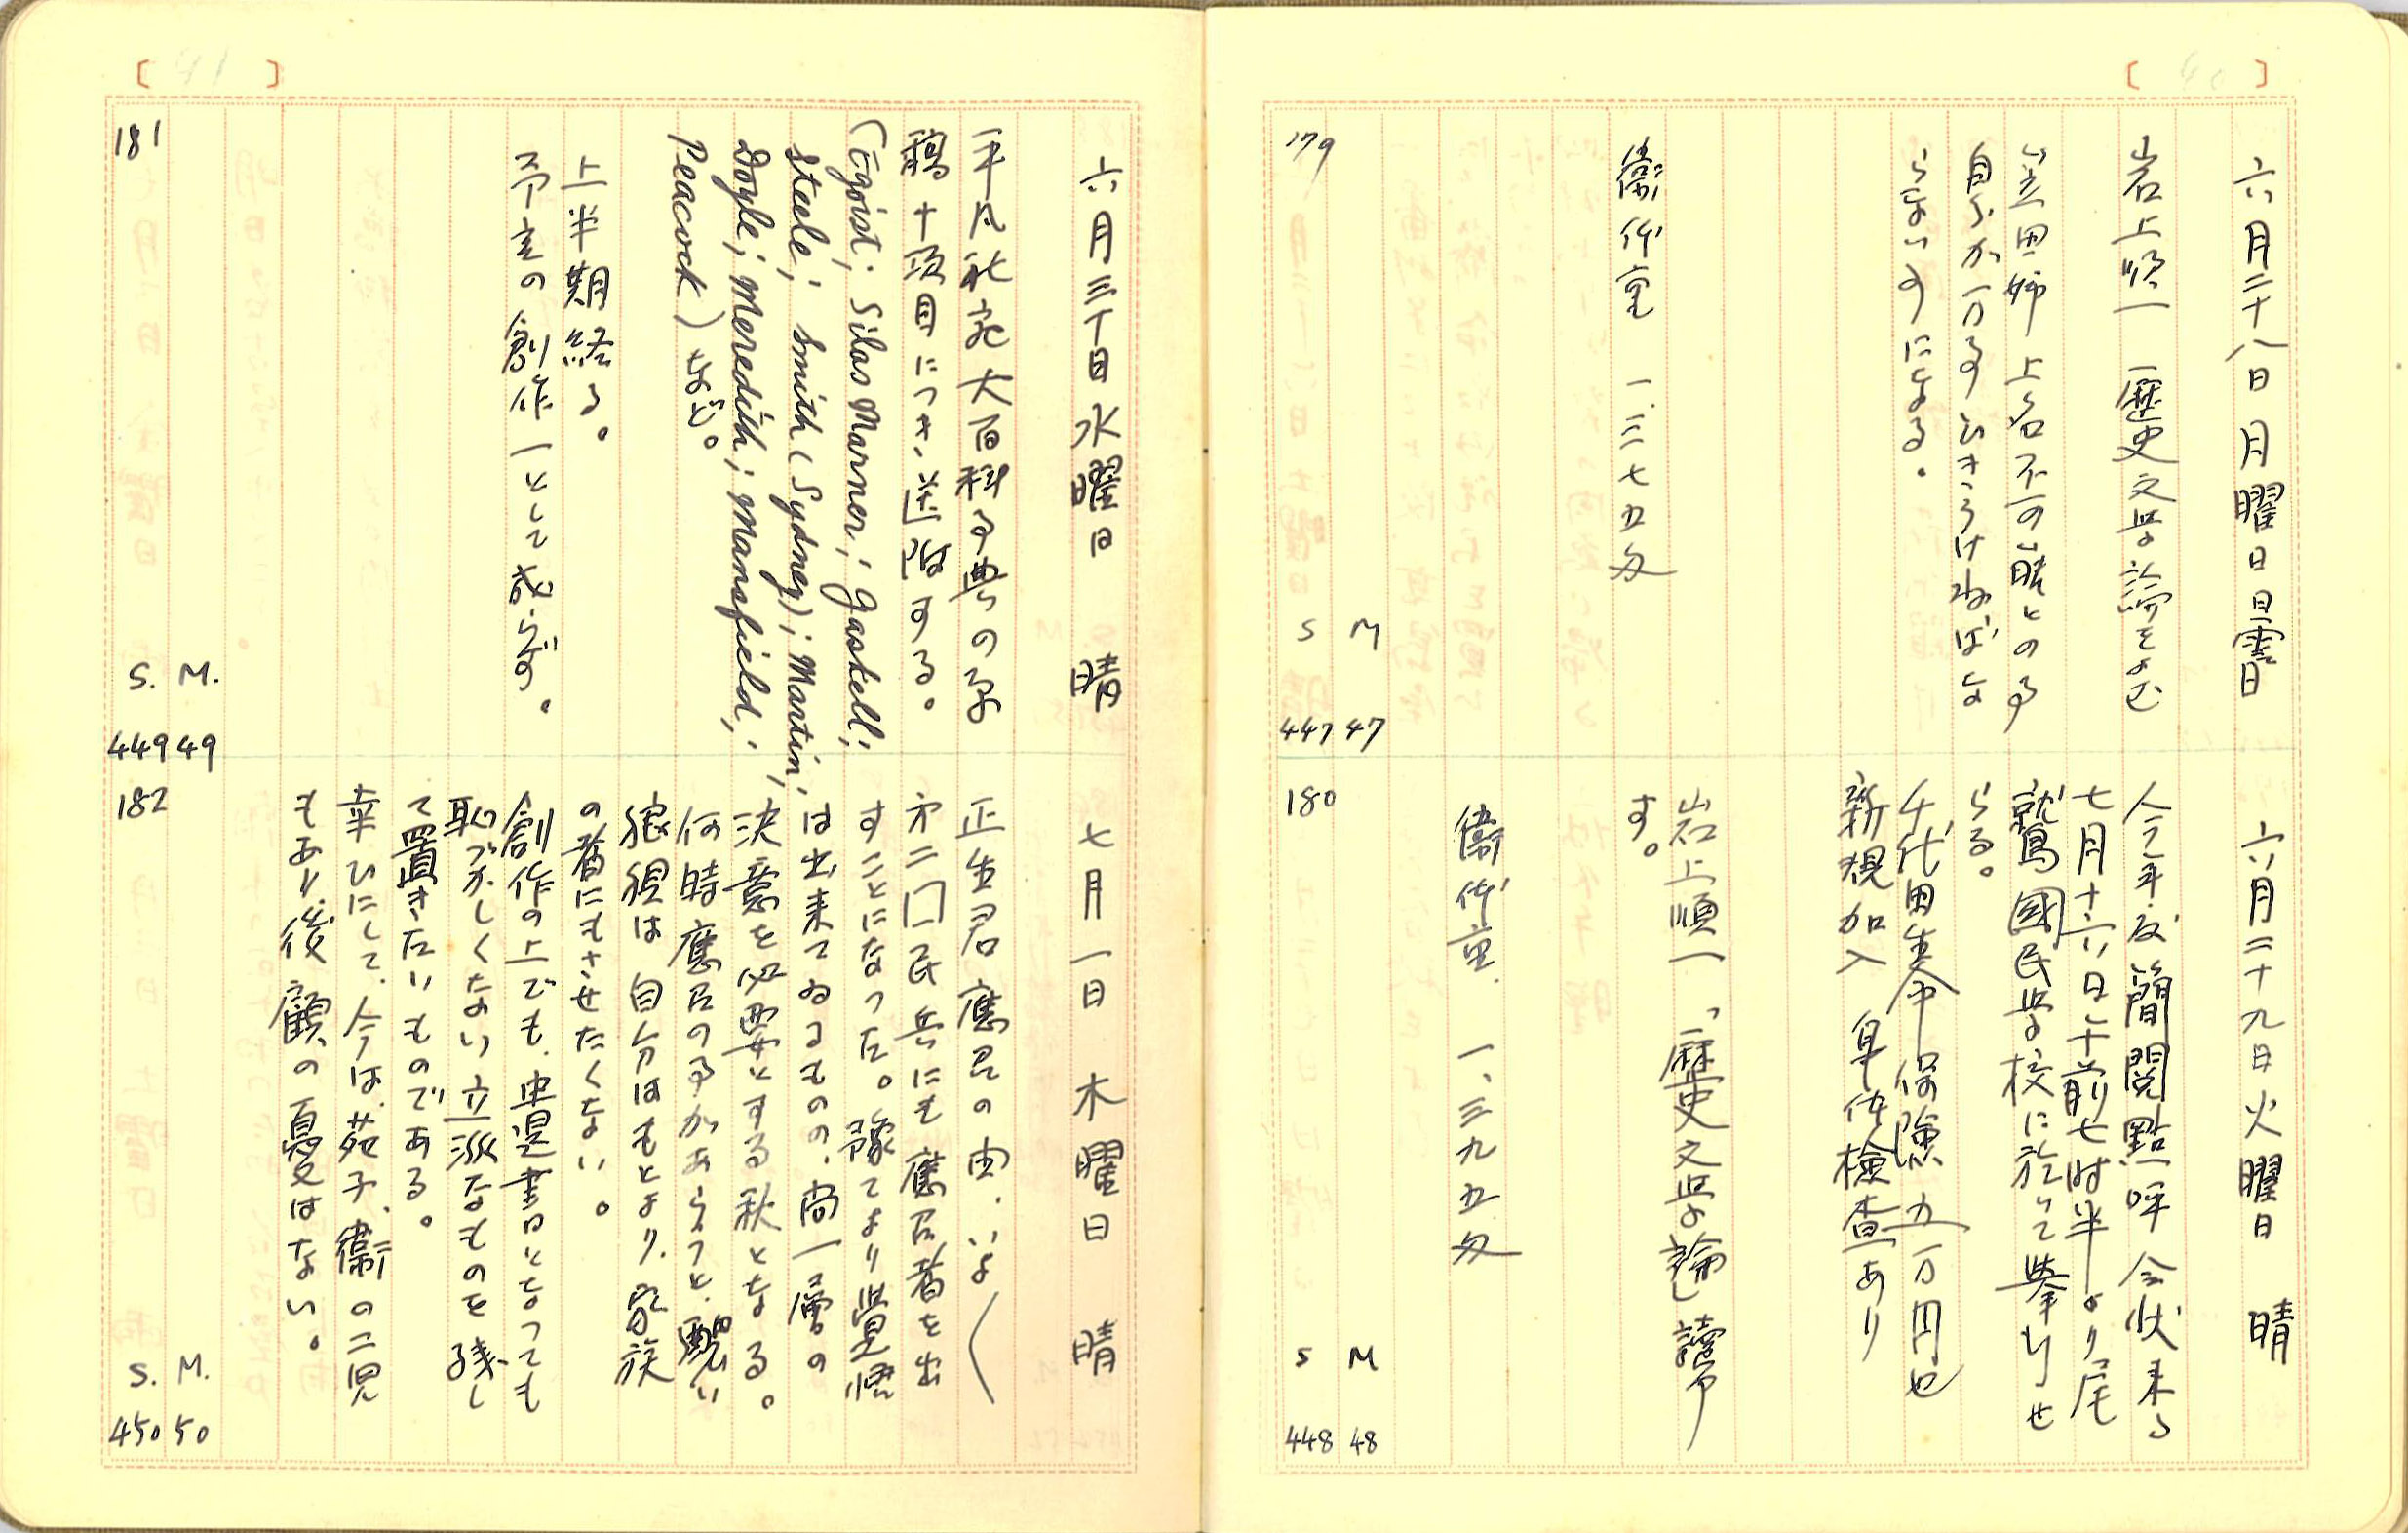 六月二十八日 月曜日 曇
岩上順一 歴史文学論をよむ
笠田姉 上名不可能との事
自分が万事ひきうけねばな
らないことになる。
衞 体重 一.三七五匁
179
S 447
M 47
六月二十九日 火曜日 晴
今年度簡閲點呼令状来る
七月十六日午前七時半より尾
鷲國民学校に於て挙行せ
らる。
千代田生命保険五万円也
新規加入 身体検査あり
岩上順一「歴史文学論」讀
す。
衞 体重. 一、三九五匁
180
S 448
M 48
六月三十日 水曜日 晴
平凡社宛大百科事典の原
稿十項目につき、送附する。
(Egoist; Silas Marner; Gaskell;
Steele; Smith (Sydney); Martin;
Doyle; Meredith; Mansfield;
Peacock) など。
上半期終る。
予定の創作一として成らず。
181
S. 449
M. 49
七月一日 木曜日 晴
正生君應召の由.いよ〳〵
第二国民兵にも應召者を出
すことになった。豫てより覚悟
は出来てゐるものの、尚一層の
決意を必要とする秋となる。
何時應召の事があらうと、醜い
狼狽は自分はもとより、家族
の者にもさせたくない。
創作の上でも、遺書となっても
恥づかしくない立派なものを残し
て置きたいものである。
幸ひにして、今は、苑子、衞の二児
もあり、後顧の憂はない。
182
S. 450
M. 50